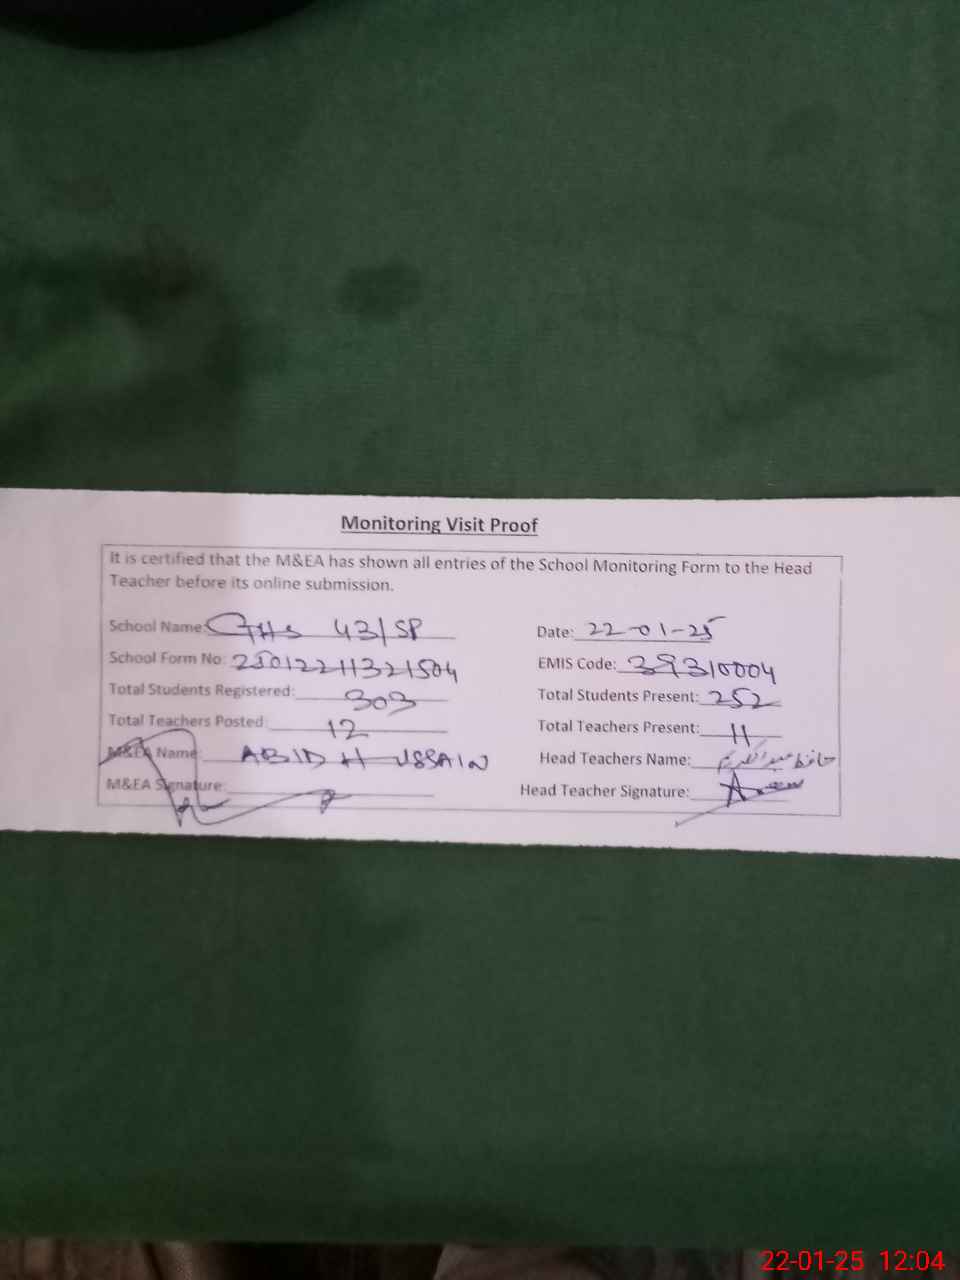 Monitoring Visit Proof
It is certified that the M&EA has shown all entries of the School Monitoring Form to the Head
Teacher before its online submission.
School Name: GHS 43/SP Date: 22-01-25
School Form No: 25012211321504 EMIS Code: 39310004
Total Students Registered: 303 Total Students Present: 252
Total Teachers Posted: 12 Total Teachers Present: 11
M&EA Name: ABID HUSSAIN Head Teachers Name: حافظ عبدالکریم
M&EA Signature: Head Teacher Signature:
22-01-25 12:04